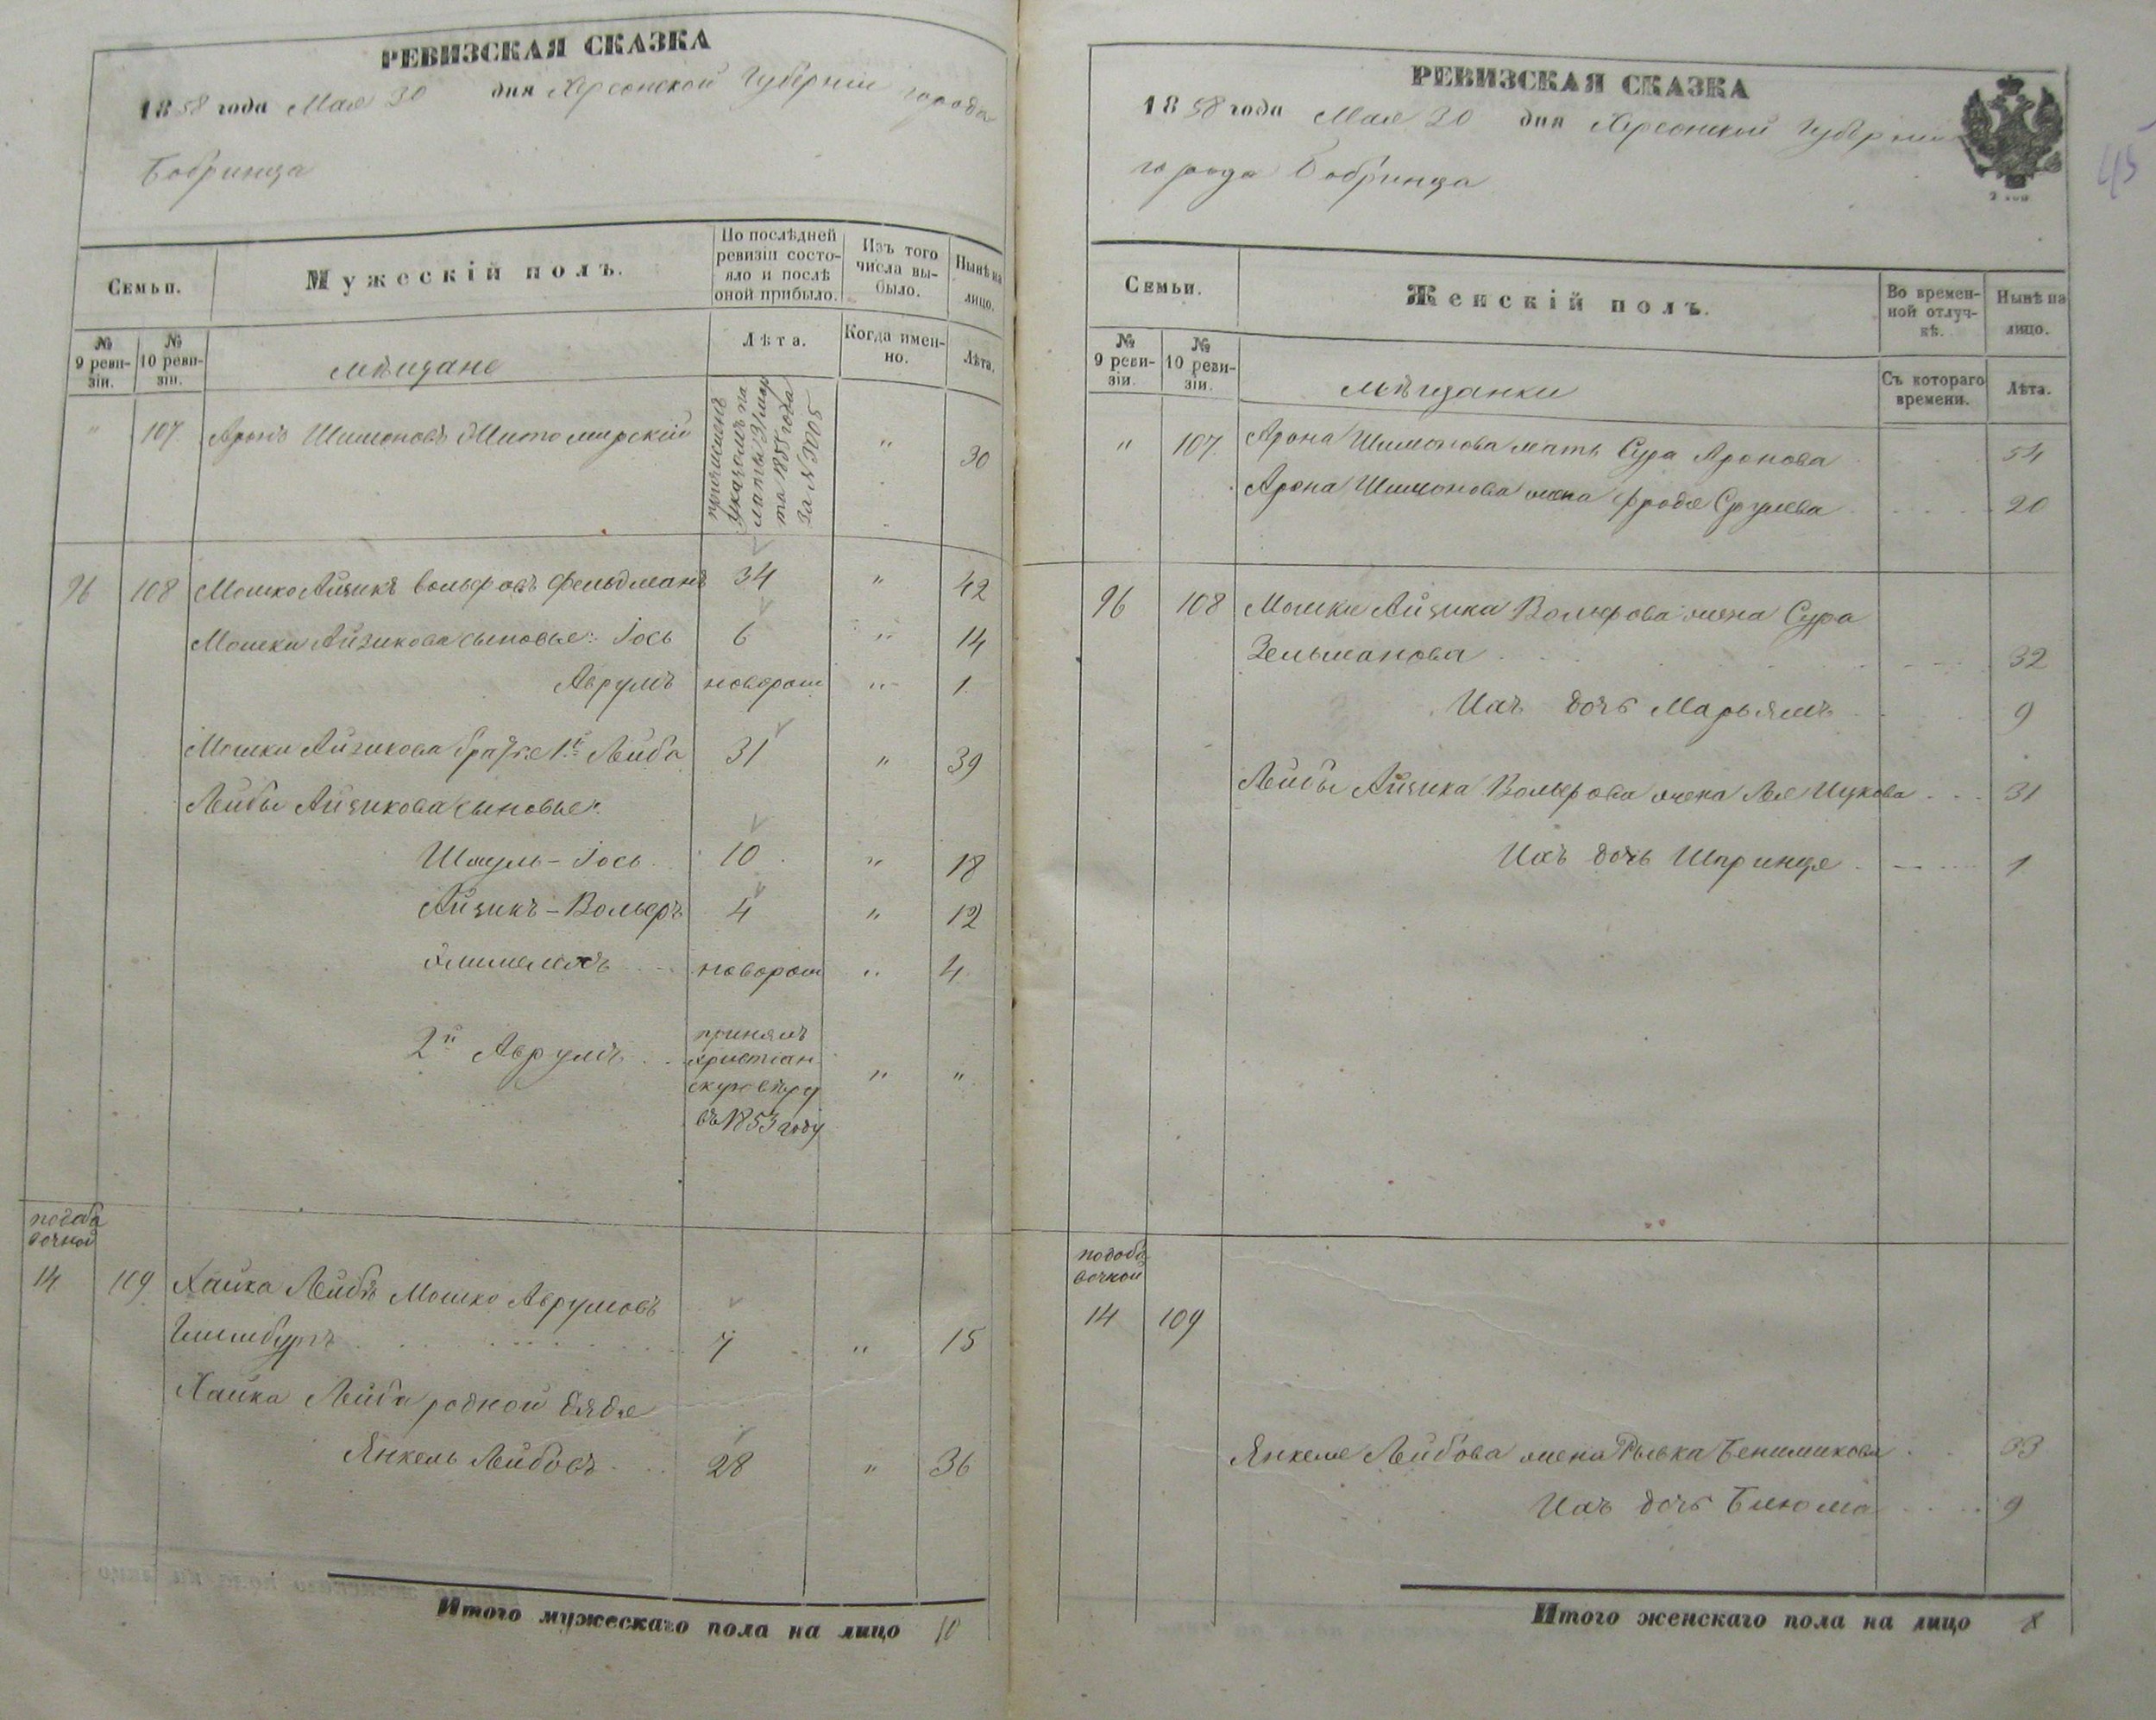 РЕВИЗСКАЯ СКАЗКА
1858 года Мая 30 дня Херсонской Губерніи города
Бобринца
Семьи.
Мужескій полъ.
По послѣдней ревизіи состо-яло и послѣ оной прибыло.
Изъ того числа вы-было.
Нынѣ на лицо.
№ 9 реви-зіи.
№ 10 реви-зіи.
мѣщане
Лѣта.
Когда имен-но.
Лѣта.
" 107 Аронъ Шимоновъ Житомирскій " 30
причисленъ
указомъ па
латы 31 мар
та 1855 года
за № 3005
96 108 Мошко Айзикъ Вольфовъ Фельдманъ 34 " 42
Мошки Айзикова сыновья: Іось 6 " 14
Аврумъ новорож " 1
Мошки Айзикова братья 1й Лейба 31 " 39
Лейбы Айзикова сыновья:
Шмуль-Іось 10 " 18
Айзикъ-Вольфъ 4 " 12
Элимелехъ новорож " 4
2й Аврумъ " "
принялъ
христіан
скую вѣру
въ 1853 году
подоба
вочной
14 109 Хаика Лейбъ Мошко Аврумовъ
Гинзбургъ 7 " 15
Хаика Лейба родной дядя
Янкель Лейбовъ 28 " 36
Итого мужескаго пола на лицо 10
РЕВИЗСКАЯ СКАЗКА
1858 года Мая 30 дня Херсонской Губерніи
города Бобринца
45
Семьи.
Женскій полъ.
Во времен-ной отлуч-кѣ.
Нынѣ на лицо.
№ 9 реви-зіи.
№ 10 реви-зіи.
мѣщанки
Съ котораго времени.
Лѣта.
" 107 Арона Шимонова мать Сура Аронова 54
Арона Шимонова жена Фродя Срулева 20
96 108 Мошки Айзика Вольфова жена Сура
Зельманова 32
Ихъ дочь Марьямъ 9
Лейбы Айзика Вольфова жена Лея Ицкова 31
Ихъ дочь Шпринця 1
подоба
вочной
14 109
Янкеля Лейбова жена Рывка Бениминова 33
Ихъ дочь Блюма 9
Итого женскаго пола на лицо 8